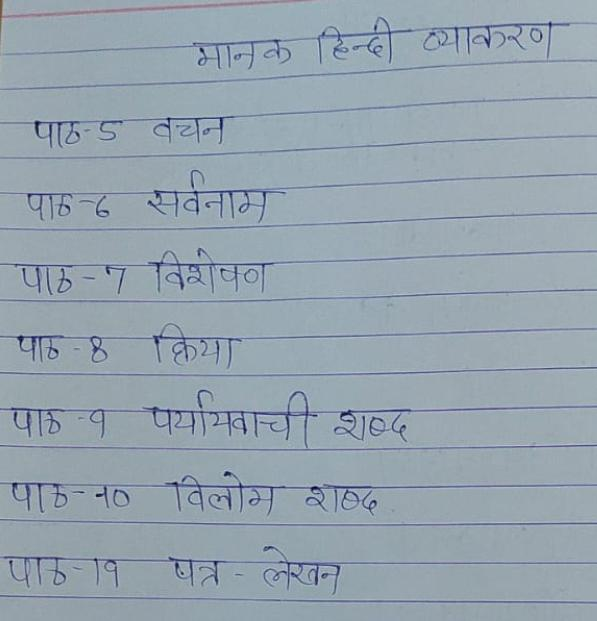 मानक हिन्दी व्याकरण
पाठ-5 वचन
पाठ-6 सर्वनाम
पाठ-7 विशेषण
पाठ-8 क्रिया
पाठ-9 पर्यायवाची शब्द
पाठ-10 विलोम शब्द
पाठ-19 पत्र-लेखन